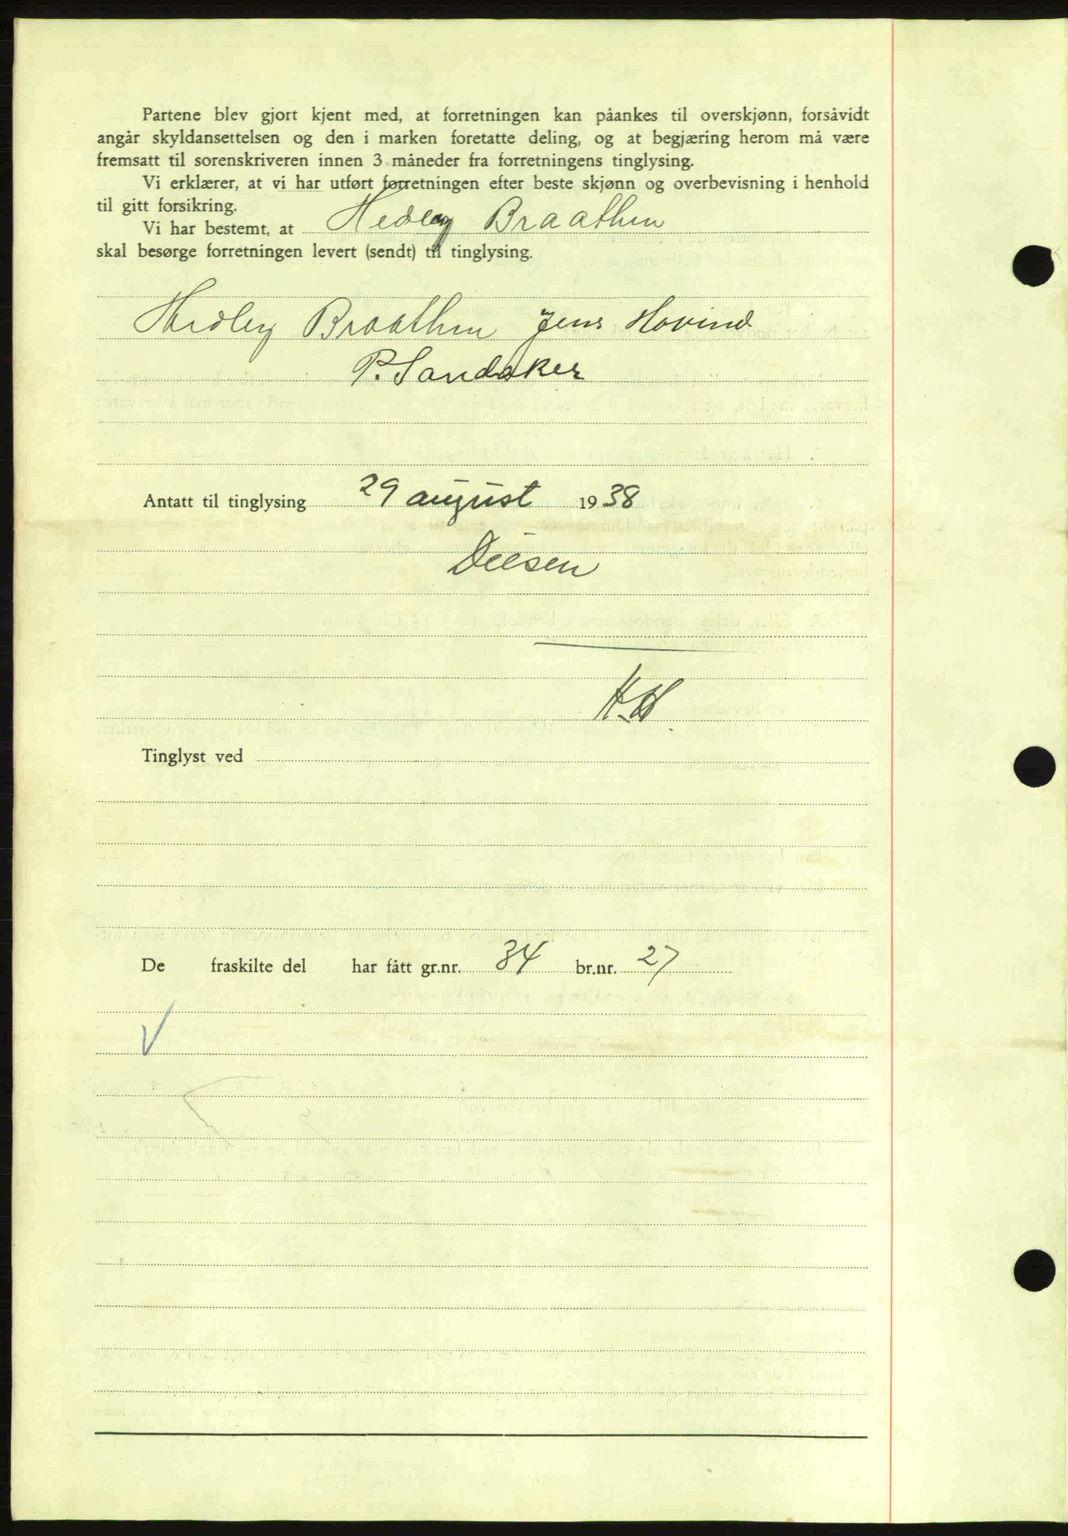 Partene blev gjort kjent med, at forretningen kan påankes til overskjønn, forsåvidt
angår skyldansettelsen og den i marken foretatte deling, og at begjæring herom må være
fremsatt til sorenskriveren innen 3 måneder fra forretningens tinglysing.
Vi erklærer, at vi har utført forretningen efter beste skjønn og overbevisning i henhold
til gitt forsikring.
Vi har bestemt, at Hedley Braathen
skal besørge forretningen levert (sendt) til tinglysing.
Hedley Braathen Jens Hovind
P. Sandaker
Antatt til tinglysing 29 august 1938
Diesen
H.H.
Tinglyst ved
De fraskilte del har fått gr.nr. 34 br.nr. 27